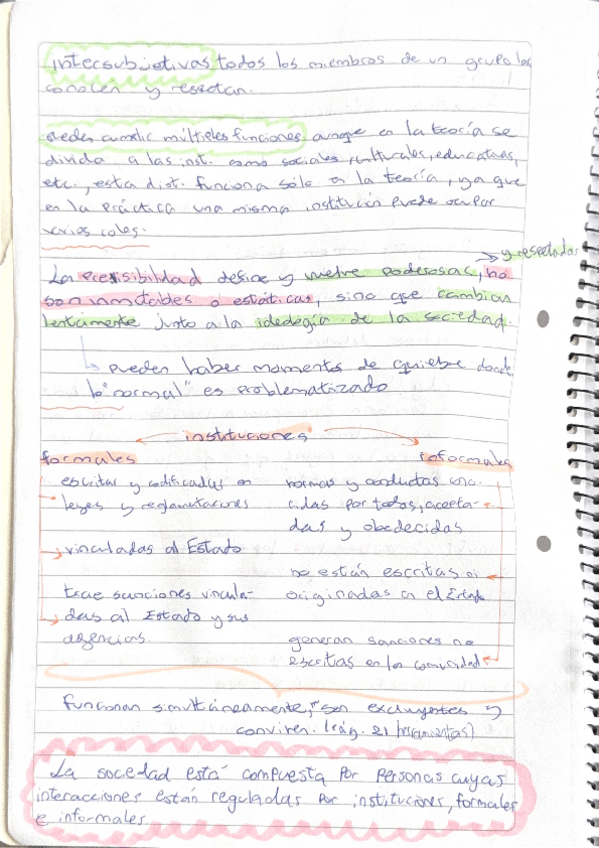 intersubjetivas todos los miembros de un grupo las
conocen y respetan.
pueden cumplir múltiples funciones aunque en la teoría se
divida a las inst. como sociales, culturales, educativas,
etc., esta dist. funciona sólo en la teoría, ya que
en la práctica una misma institución puede ocupar
varios roles.
→ y respetadas
La previsibilidad define y vuelve poderosas, no
son inmutables o estáticas, sino que cambian
lentamente junto a la ideología de la sociedad.
↳ pueden haber momentos de quiebre donde
lo "normal" es problematizado
instituciones
formales
escritas y codificadas en
leyes y reglamentaciones
vinculadas al Estado
trae sanciones vincula-
das al Estado y sus
agencias.
informales
normas y conductas cono-
cidas por todos, acepta-
das y obedecidas
no están escritas ni
originadas en el Estado
generan sanciones no
escritas en la comunidad
funcionan simultáneamente, son excluyentes y
conviven. (pág. 21 herramientas)
La sociedad está compuesta por personas cuyas
interacciones están reguladas por instituciones, formales
e informales